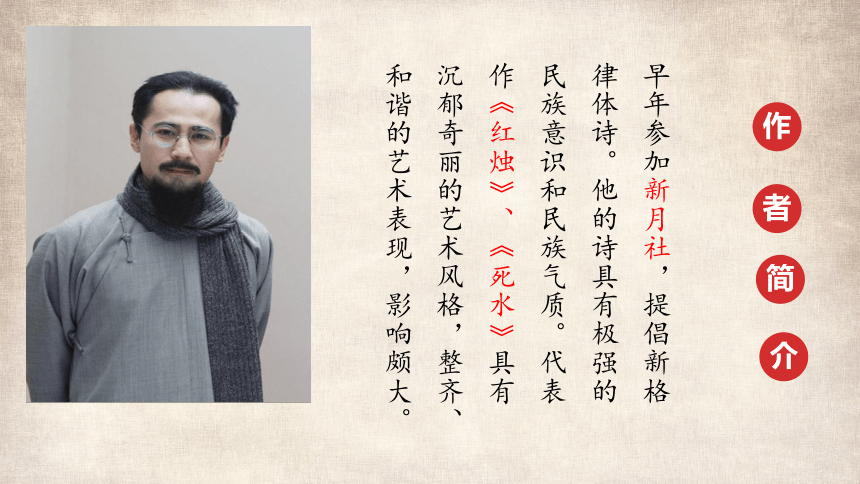 作者简介
早年参加新月社，提倡新格
律体诗。他的诗具有极强的
民族意识和民族气质。代表
作《红烛》、《死水》具有
沉郁奇丽的艺术风格，整齐、
和谐的艺术表现，影响颇大。